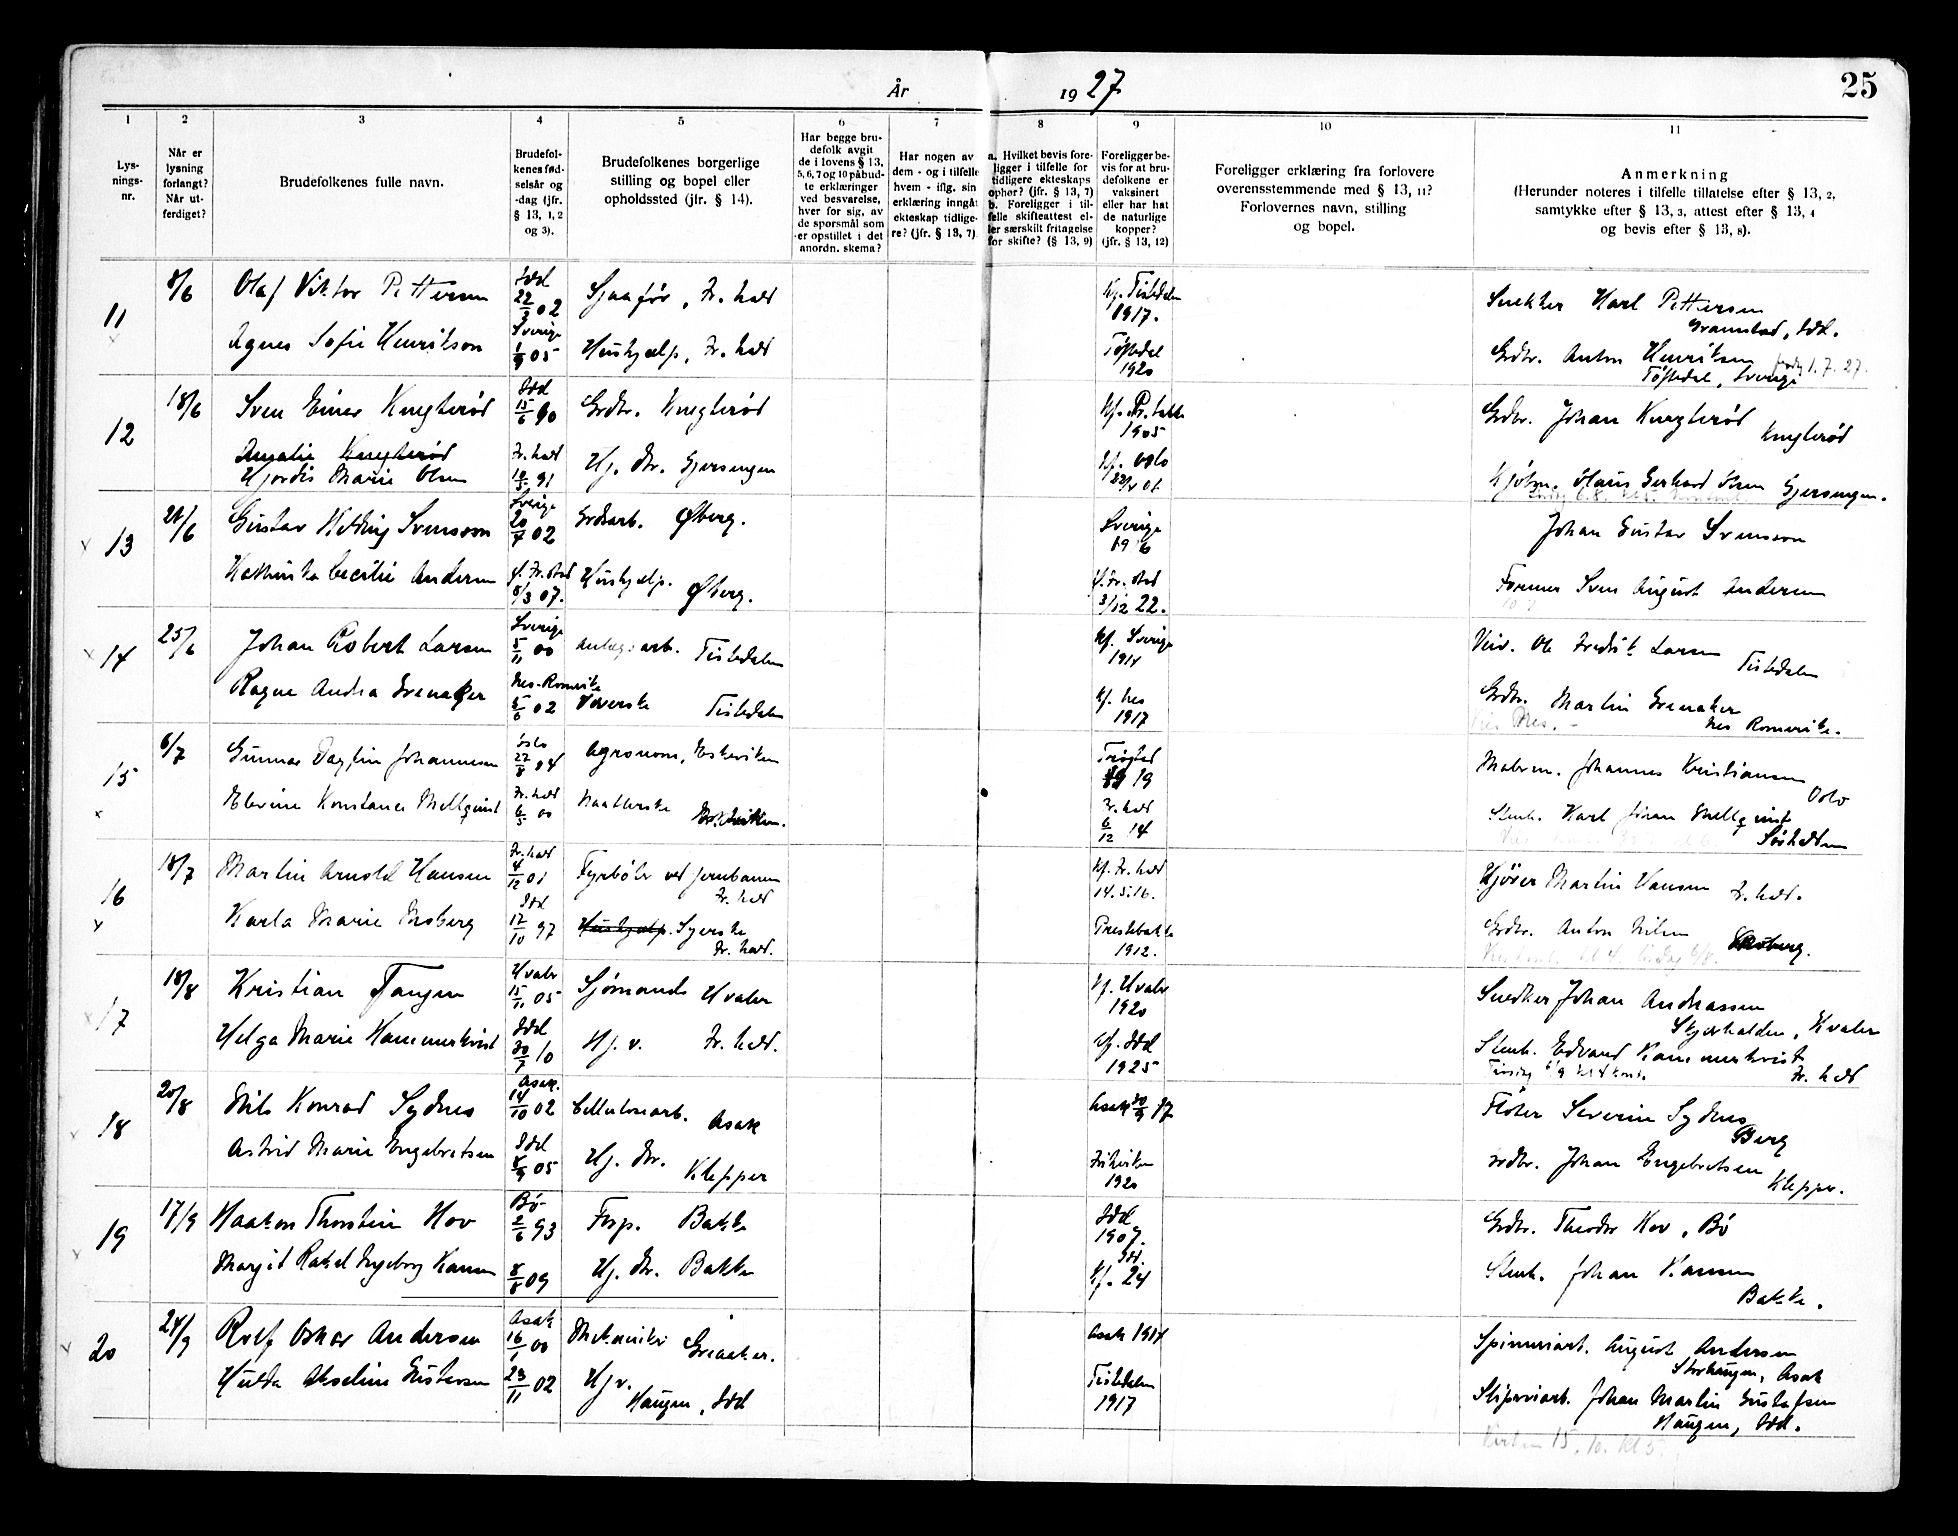 År 1927
25
1 2 3 4 5 6 7 8 9 10 11
Lys-
nings-
nr.
Når er
lysning
forlangt?
Når ut-
ferdiget?
Brudefolkenes fulle navn.
Brudefol-
kenes fød-
selsår og
-dag (jfr.
§ 13, 1, 2
og 3).
Brudefolkenes borgerlige
stilling og bopel eller
opholdssted (jfr. § 14).
Har begge bru-
defolk avgit
de i lovens § 13,
5, 6, 7 og 10 påbud-
te erklæringer
ved besvarelse,
hver for sig, av
de spørsmål som
er opstillet i det
anordn. skema?
Har nogen av
dem - og i tilfelle
hvem - iflg. sin
erklæring inngåt
ekteskap tidlige-
re? (jfr. § 13, 7)
a. Hvilket bevis fore-
ligger i tilfelle for
tidligere ekteskaps
ophør? (jfr. § 13, 7)
b. Foreligger i til-
felle skifteattest el-
ler særskilt fritagelse
for skifte? (§ 13, 9)
Foreligger be-
vis for at bru-
defolkene er
vaksinert
eller har hat
de naturlige
kopper?
(jfr. § 13, 12)
Foreligger erklæring fra forlovere
overensstemmende med § 13, 11?
Forlovernes navn, stilling
og bopel.
Anmerkning
(Herunder noteres i tilfelle tillatelse efter § 13, 2,
samtykke efter § 13, 3, attest efter § 13, 4
og bevis efter § 13, 8).
11 8/6 Olaf Viktor Pettersen Idd 22/3 02 Sjaafør, Fr.hald Kf. Tistedalen 1917. Snekker Karl Pettersen
Grønstad, Idd.
Agnes Sofie Henrikson Sverige 1/9 05 Hushjælp, Fr.hald Töftedal 1920 Grdbr. Anton Henriksen 1.7.27.
Töftedal, Sverige
12 18/6 Sven Einar Knyterød Idd 15/6 90 Grdbr. Knyterød 1905 Grdbr. Johan Knyterød
Knyterød
Amalie Knyterød
Hjørdis Marie Olsen Fr.hald 91 Hj. dtr. Gjersengen Kf. Oslo Hans Gerhard Olsen Gjersengen.
13 21/6 Gustav Hedvig Svensson Sverige 20/7 02 Grdsarb. Øberg. Sverige 1916 Johan Gustav Svensson
Kathinka Cecilie Andersen Gl. Fr.stad 8/3 07. Hushjælp. Øberg. Gl. Fr.stad 3/12 22. Former Sven August Andersen
14 25/6 Johan Robert Larsen Sverige 5/11 00 Anlægsarb. Tistedalen Kf. Sverige 1914 Veiv. Ole Fredrik Larsen
Tistedalen
Ragna Andrea Grenaker Nes-Romerike 5/6 02 Væverske Tistedalen Kf. Nes 1917 Grdbr. Martin Grenaker
Nes Romerike.
15 6/7 Gunnar Dagfin Johannesen Oslo 22/8 04 Agronom, Eskeviken Trøgstad 19 Malerm. Johannes Kristiansen
Oslo
Elevine Konstance Mellqvist Fr.hald 6/5 00 Fr.hald 6/12 14 Stenh. Karl Johan Mellqvist
16 18/7 Martin Arnold Hansen Fr.hald 4/12 01 Fyrbøter ved jernbanen
Fr.hald Kf. Fr.hald 14.5.16. Kjører Martin Hansen Fr.hald.
Karla Marie Moberg Idd 17/10 97 Hushjælp. Syerske
Fr.hald. Prestebakke 1912. Grdbr. Anton Nilsen
Moberg.
17 18/8 Kristian Tangen Hvaler 15/11 05 Sjømand Hvaler Kf. Hvaler 1920 Snedker Johan Andreassen
Skjærhalden, Hvaler
Helga Marie Hammerkvist Idd 30/7 10 Hj. v. Fr.hald. Kf. Idd 1925 Stenh. Edvard Hammerkvist
Fr.hald
18 20/8 Nils Konrad Sydnes Asak. 14/10 02 Cellulosearb. Asak Asak 30/9 17 Fløter Severin Sydnes
Berg
Astrid Marie Engebretsen Idd 8/9 05 Hj. dtr. Klepper 1920 Grdbr. Johan Engebretsen
Klepper.
19 17/9 Haakon Thorstein Hov Bø 2/6 93 Forp. Bakke Idd 1907. Grdbr. Theodor Hov, Bø
Margit Rakel Ingeborg Hansen 8/8 09 Hj. dtr. Bakke Idd. Kf. 24 Stenh. Johan Hansen
Bakke.
20 24/9 Rolf Oskar Andersen Asak 16/1 00 Mekaniker Greaaker. Asak 1914 Spinneriarb. August Andersen
Storhaugen, Asak
Hulda Akseline Gustavsen 23/11 02 Hj v.
Haugen, Idd Tistedalen 1917 Sliperiarb. Johan Martin Gustafsen
Haugen, Idd.
15. 10. kl 5.